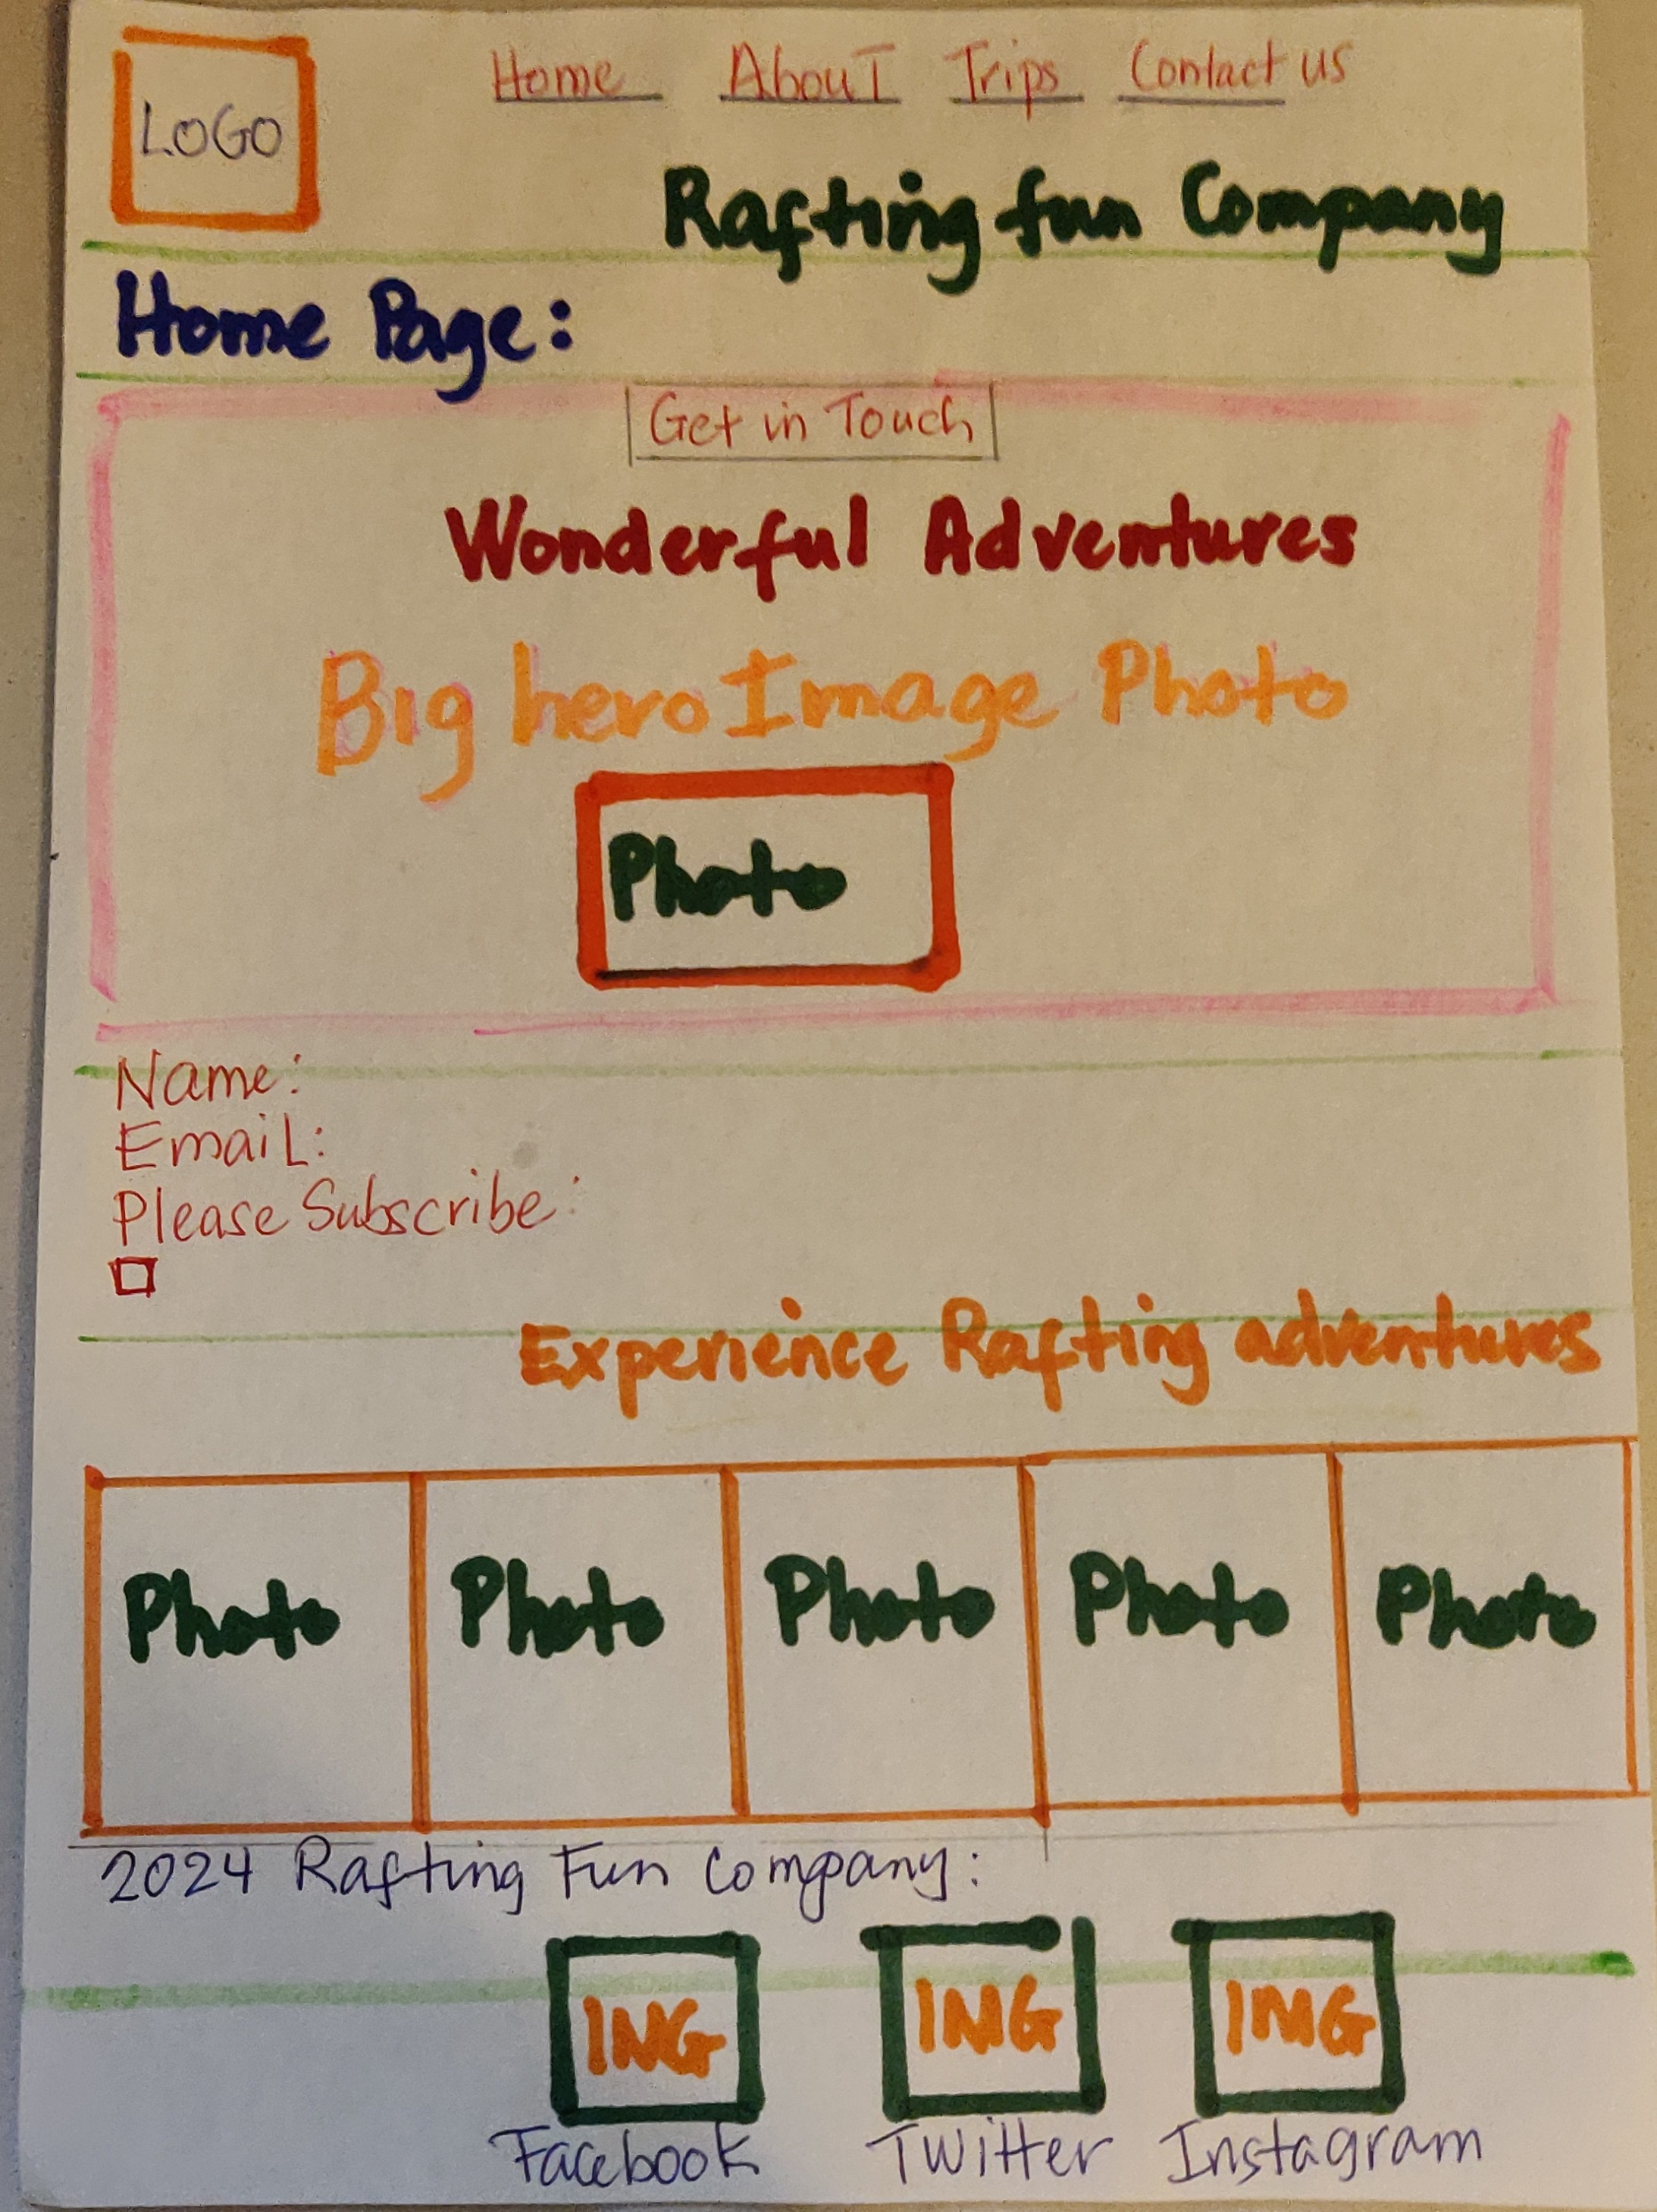 Home About Trips Contact us
LOGO
Rafting fun Company
Home Page:
Get in Touch
Wonderful Adventures
Big hero Image Photo
Photo
Name:
Email:
Please Subscribe:
Experience Rafting adventures
Photo Photo Photo Photo Photo
2024 Rafting Fun Company:
ING ING IMG
Facebook Twitter Instagram